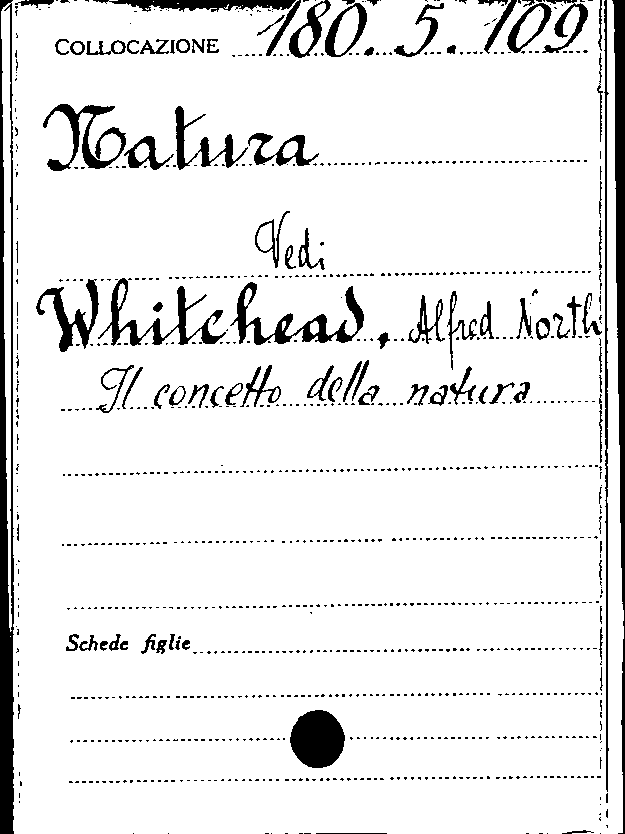 COLLOCAZIONE 180.5.109
Natura
Vedi
Whitehead, Alfred North
Il concetto della natura
Schede figlie